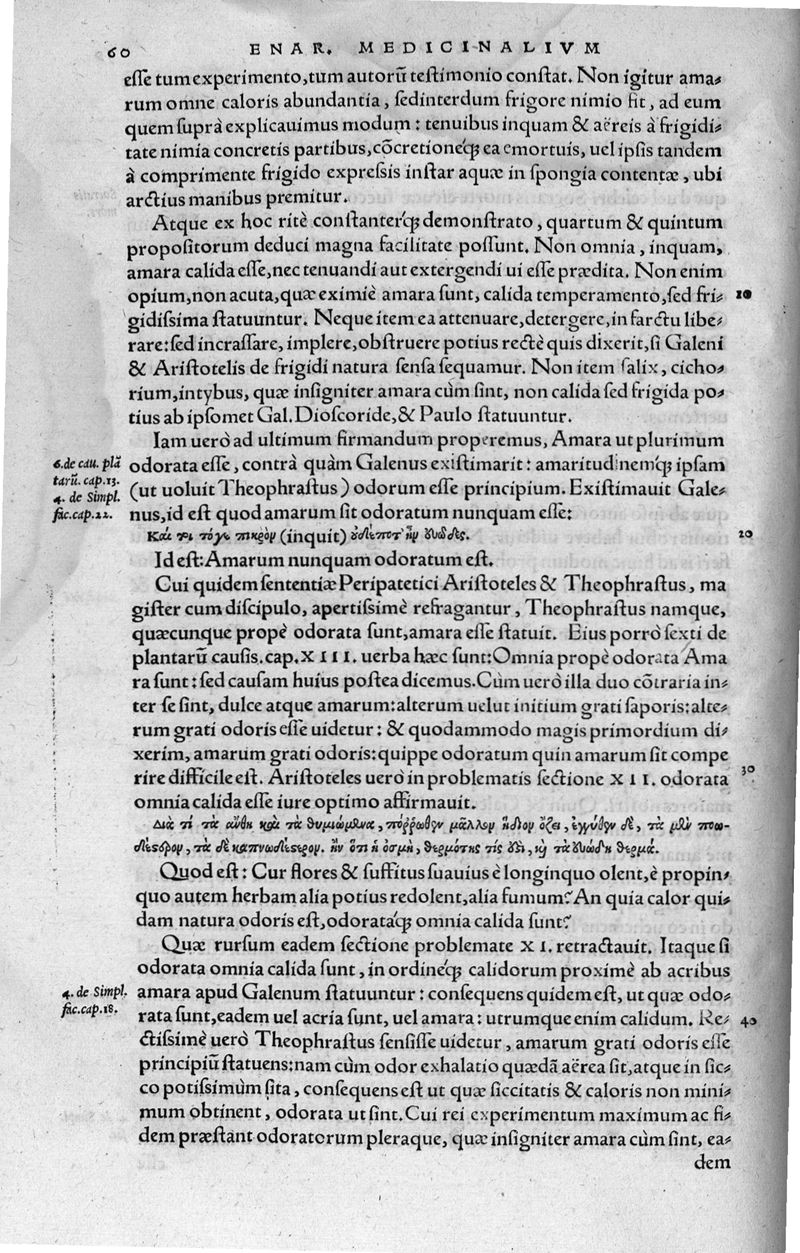 60 ENAR. MEDICINALIVM
esse tum experimento, tum autorũ testimonio constat. Non igitur ama-
rum omne caloris abundantia, sed interdum frigore nimio fit, ad eum
quem suprà explicauimus modum: tenuibus inquam & aëreis à frigidi-
tate nimia concretis partibus, cõcretioneq́ꝫ ea emortuis, uel ipsis tandem
à comprimente frigido expressis instar aquæ in spongia contentæ, ubi
arctius manibus premitur.
Atque ex hoc ritè constanterq́ꝫ demonstrato, quartum & quintum
propositorum deduci magna facilitate possunt. Non omnia, inquam,
amara calida esse, nec tenuandi aut extergendi ui esse prædita. Non enim
opium, non acuta, quæ eximiè amara sunt, calida temperamento, sed fri- 10
gidissima statuuntur. Neque item ea attenuare, detergere, in farctu libe-
rare: sed incrassare, implere, obstruere potius rectè quis dixerit, si Galeni
& Aristotelis de frigidi natura sensa sequamur. Non item salix, cicho-
rium, intybus, quæ insigniter amara cùm sint, non calida sed frigida po-
tius ab ipsomet Gal. Dioscoride, & Paulo statuuntur.
Iam uerò ad ultimum firmandum properemus, Amara ut plurimum
6. de cau. plã
tarũ. cap. 13.
4. de Simpl.
fac. cap. 22.
odorata esse, contrà quàm Galenus existimarit: amaritudinemq́ꝫ ipsam
(ut uoluit Theophrastus) odorum esse principium. Existimauit Gale-
nus, id est quod amarum sit odoratum nunquam esse:
Καί τι τόγε πικρὸν (inquit) οὐδέποτ' ἦν εὐῶδες. 20
Id est: Amarum nunquam odoratum est.
Cui quidem sententiæ Peripatetici Aristoteles & Theophrastus, ma
gister cum discipulo, apertissimè refragantur, Theophrastus namque,
quæcunque propè odorata sunt, amara esse statuit. Eius porrò sexti de
plantarũ causis. cap. XIII. uerba hæc sunt: Omnia propè odorata Ama
ra sunt: sed causam huius postea dicemus. Cùm uerò illa duo cõtraria in-
ter se sint, dulce atque amarum: alterum uelut initium grati saporis: alte-
rum grati odoris esse uidetur: & quodammodo magis primordium di-
xerim, amarum grati odoris: quippe odoratum quin amarum sit compe
rire difficile est. Aristoteles uerò in problematis sectione XII. odorata 30
omnia calida esse iure optimo affirmauit.
Διὰ τί τὰ ἄνθη καὶ τὰ θυμιώμενα, πόῤῥωθεν μᾶλλον ἥδιον ὄζει, ἐγγύθεν δὲ, τὰ μὲν ποω-
δέστερον, τὰ δὲ καπνωδέστερον. ἢν ὅτι ἡ ὀσμὴ, θερμότης τίς ἐστι, καὶ τὰ εὐώδη θερμά.
Quod est: Cur flores & suffitus suauius è longinquo olent, è propin-
quo autem herbam alia potius redolent, alia fumum? An quia calor qui-
dam natura odoris est, odorataq́ꝫ omnia calida sunt?
Quæ rursum eadem sectione problemate XI. retractauit. Itaque si
odorata omnia calida sunt, in ordineq́ꝫ calidorum proximè ab acribus
4. de Simpl.
fac. cap. 18.
amara apud Galenum statuuntur: consequens quidem est, ut quæ odo-
rata sunt, eadem uel acria sunt, uel amara: utrumque enim calidum. Re- 40
ctissimè uerò Theophrastus sensisse uidetur, amarum grati odoris esse
principiũ statuens: nam cùm odor exhalatio quædã aërea sit, atque in sic-
co potissimùm sita, consequens est ut quæ siccitatis & caloris non mini-
mum obtinent, odorata ut sint. Cui rei experimentum maximum ac fi-
dem præstant odoratorum pleraque, quæ insigniter amara cùm sint, ea-
dem